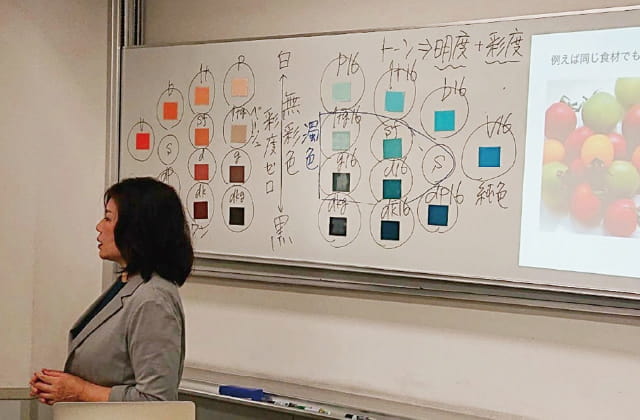 トーン⇒明度+彩度
例えば同じ食材でも
白
無彩色
彩度ゼロ
黒
濁色
純色
P
lt
b
sf
S
d
g
dk
dkg
dp
P16
lt16
b16
V16
ltg16
sf
S
g16
d16
dkg
dk16
dp16